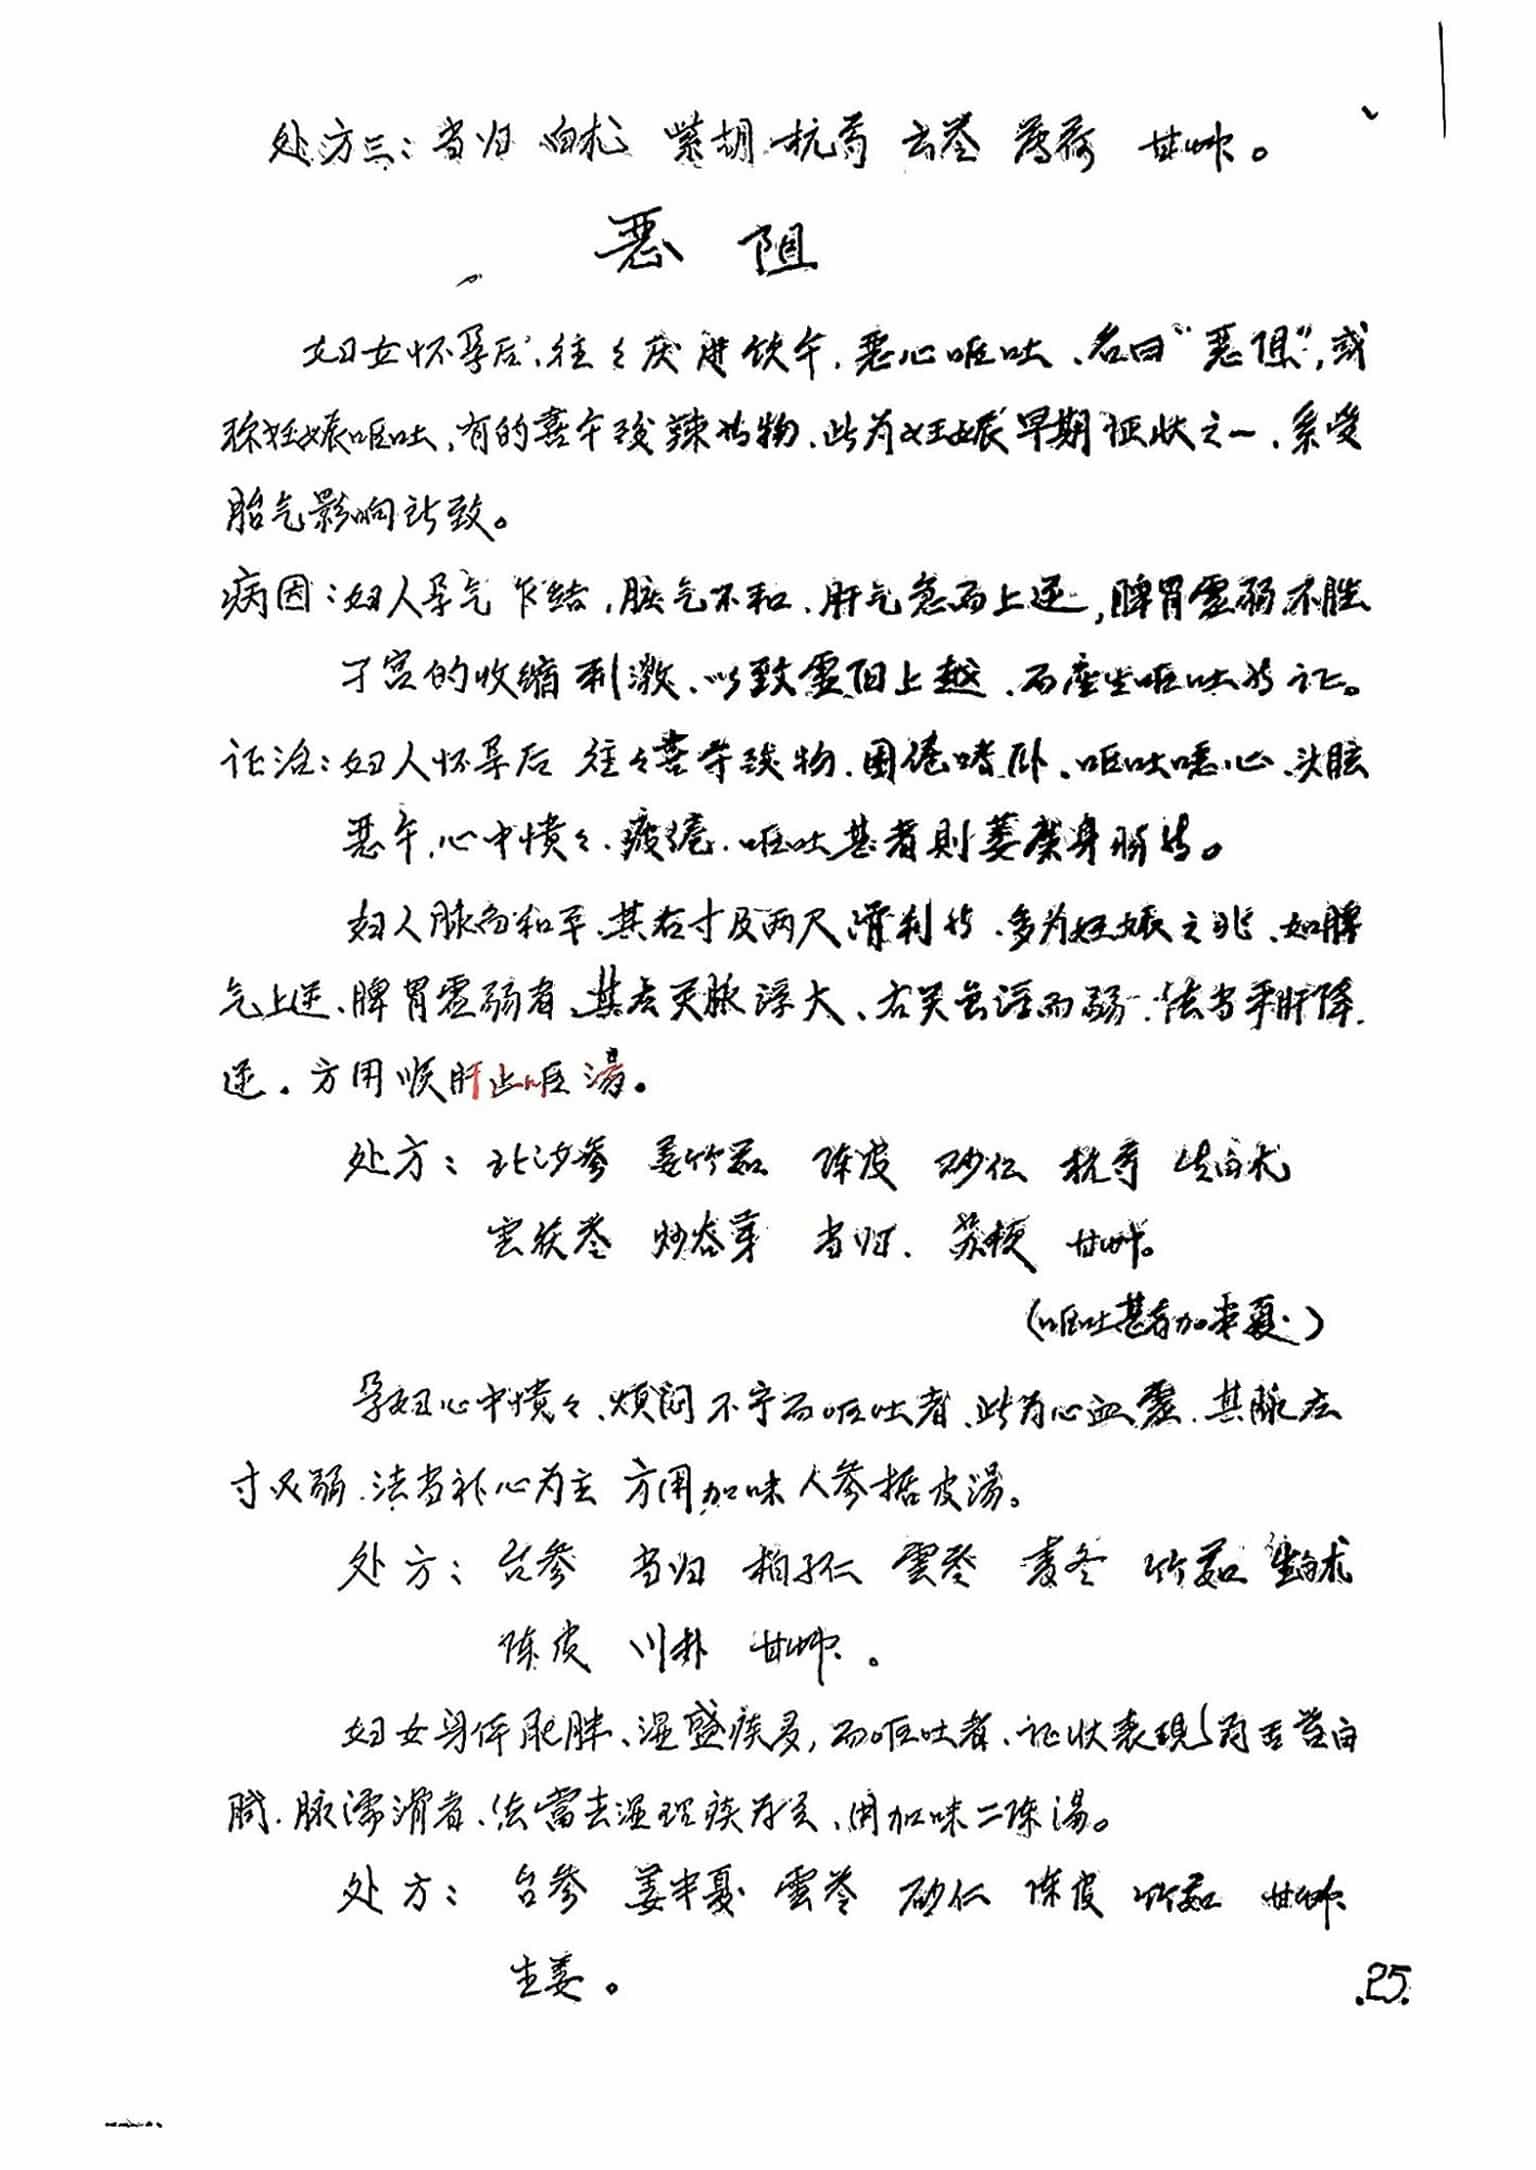 处方三：当归 白朮 紫胡 杭芍 云苓 薄荷 甘艸。
恶 阻
妇女怀孕后，往々厌进饮午，恶心呕吐、名曰“恶阻”，或
称妊娠呕吐，有的喜午酸辣等物、此为妊娠早期证状之一、系受
胎气影响所致。
病因：妇人孕气下结，胀气不和、肝气急而上逆，脾胃虚弱不胜
子宫的收缩刺激、以致虚阳上越、而產生呕吐等证。
证治：妇人怀孕后 往々喜等酸物、困倦嗜卧、呕吐噁心、头眩
恶午，心中愦々、疲倦、呕吐甚者則萎
妇人脉多和平、其右寸及两尺滑利者、多为妊娠之兆、如脾
气上逆、脾胃虚弱者、其左关脉浮大、右关多浮而弱、法当平肝降
逆。方用顺肝止呕湯。
处方：北沙参 姜竹茹 陈皮 砂仁 杭芍 生白术
雲茯苓 炒谷芽 当归、苏梗 甘艸。
（呕吐甚者加半夏）
孕妇心中愦々、烦闷不宁而呕吐者、此为心血虚、其脉左
寸必弱、法当补心为主 方用加味人参桔皮湯。
处方：台参 当归 柏子仁 雲苓 麦冬 竹茹 生白术
陈皮 川朴 甘艸。
妇女身体肥胖、湿盛痰多，而呕吐者、证状表现为舌苔白
腻、脉濡滑者、法當去湿理痰为主、用加味二陈湯。
处方：台参 姜半夏 雲苓 砂仁 陈皮 竹茹 甘艸
生姜。
.25.